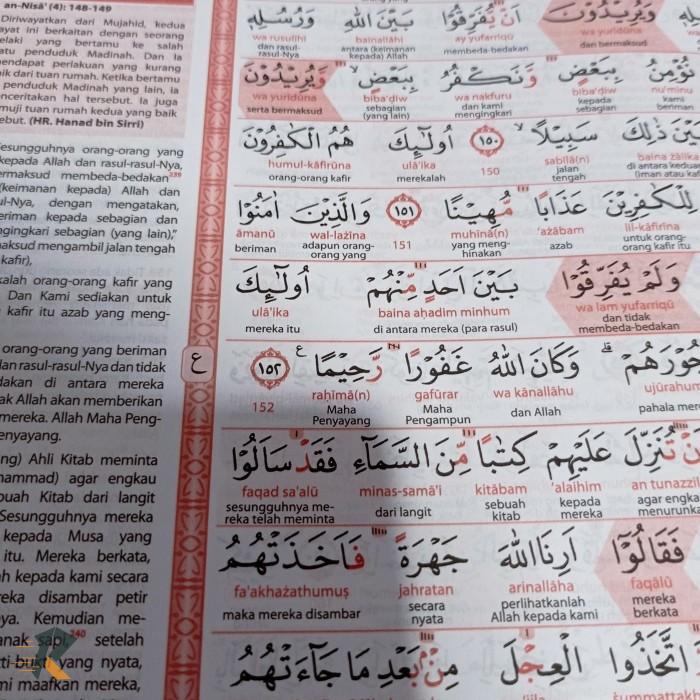 an-Nisā' (4): 148-149
Diriwayatkan dari Mujahid, kedua
ayat ini berkaitan dengan seorang
lelaki yang bertamu ke salah
satu penduduk Madinah. Dan Ia
mendapat perlakuan yang kurang
baik dari tuan rumah. Ketika bertamu
penduduk Madinah yang lain, ia
menceritakan hal tersebut. Ia juga
memuji tuan rumah kedua yang baik
tersebut. (HR. Hanad bin Sirri)
Sesungguhnya orang-orang yang
kepada Allah dan rasul-rasul-Nya,
bermaksud membeda-bedakan²³⁹
(keimanan kepada) Allah dan
-Nya, dengan mengatakan,
beriman kepada sebagian dan
mengingkari sebagian (yang lain),"
maksud mengambil jalan tengah
kafir),
orang-orang kafir yang
Dan Kami sediakan untuk
kafir itu azab yang meng-
orang-orang yang beriman
dan rasul-rasul-Nya dan tidak
di antara mereka
akan memberikan
mereka. Allah Maha Peng-
Ahli Kitab meminta
agar engkau
buah Kitab dari langit
Sesungguhnya mereka
kepada Musa yang
itu. Mereka berkata,
kepada kami secara
disambar petir
Kemudian me-
anak sapi,²⁴⁰ setelah
bukti yang nyata,
maafkan mereka,
اَنْ يُّفَرِّقُوْا بَيْنَ اللّٰهِ وَرُسُلِهٖ وَيُرِيْدُوْنَ
wa yurīdūna ay yufarriqū bainallāhi wa rusulihī
dan bermaksud membeda-bedakan antara (keimanan kepada) Allah dan rasul-rasul-Nya
نُؤْمِنُ بِبَعْضٍ وَّنَكْفُرُ بِبَعْضٍۙ وَّيُرِيْدُوْنَ
nu'minu biba'ḍiw wa nakfuru biba'ḍiw wa yurīdūna
kami beriman kepada sebagian dan kami mengingkari sebagian (yang lain) serta bermaksud
بَيْنَ ذٰلِكَ سَبِيْلًاۙ ١٥٠ اُولٰۤىِٕكَ هُمُ الْكٰفِرُوْنَ
baina żālika sabīlā(n) 150 ulā'ika humul-kāfirūna
di antara jalan tengah merekalah orang-orang kafir
لِلْكٰفِرِيْنَ عَذَابًا مُّهِيْنًا ١٥١ وَالَّذِيْنَ اٰمَنُوْا
lil-kāfirīna 'ażābam muhīnā(n) 151 wal-lażīna āmanū
untuk orang-orang kafir itu azab yang meng-hinakan adapun orang-orang yang beriman
وَلَمْ يُفَرِّقُوْا بَيْنَ اَحَدٍ مِّنْهُمْ اُولٰۤىِٕكَ
wa lam yufarriqū baina aḥadim minhum ulā'ika
dan tidak membeda-bedakan di antara mereka (para rasul) mereka itu
اُجُوْرَهُمْۗ وَكَانَ اللّٰهُ غَفُوْرًا رَّحِيْمًا ࣖ ١٥٢ ع
ujūrahum wa kānallāhu gafūrar raḥīmā(n) 152
pahala dan Allah Maha Pengampun Maha Penyayang
تُنَزِّلَ عَلَيْهِمْ كِتٰبًا مِّنَ السَّمَاۤءِ فَقَدْ سَاَلُوْا
an tunazzila 'alaihim kitābam minas-samā'i faqad sa'alū
agar engkau menurunkan kepada mereka sebuah kitab dari langit sesungguhnya me-reka telah meminta
فَقَالُوْٓا اَرِنَا اللّٰهَ جَهْرَةً فَاَخَذَتْهُمُ
faqālū arinallāha jahratan fa'akhażathumuṣ
mereka berkata perlihatkanlah Allah kepada kami secara nyata maka mereka disambar
اتَّخَذُوا الْعِجْلَ مِنْۢ بَعْدِ مَا جَاۤءَتْهُمُ